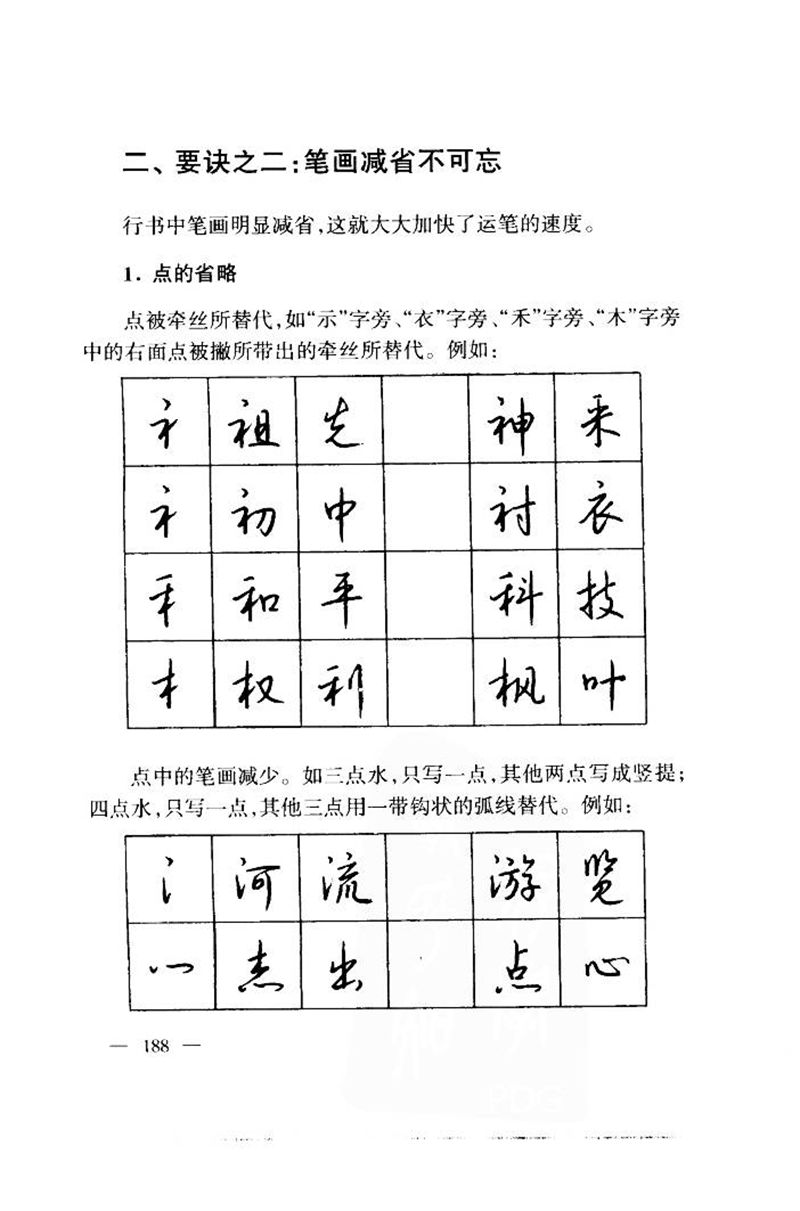 二、要诀之二:笔画减省不可忘
行书中笔画明显减省,这就大大加快了运笔的速度。
1. 点的省略
点被牵丝所替代,如“示”字旁、“衣”字旁、“禾”字旁、“木”字旁
中的右面点被撇所带出的牵丝所替代。例如:
礻 祖 先 神 采
衤 初 中 衬 衣
禾 和 平 科 技
木 权 利 枫 叶
点中的笔画减少。如三点水,只写一点,其他两点写成竖提;
四点水,只写一点,其他三点用一带钩状的弧线替代。例如:
氵 河 流 游 览
灬 杰 出 点 心
— 188 —
PDG